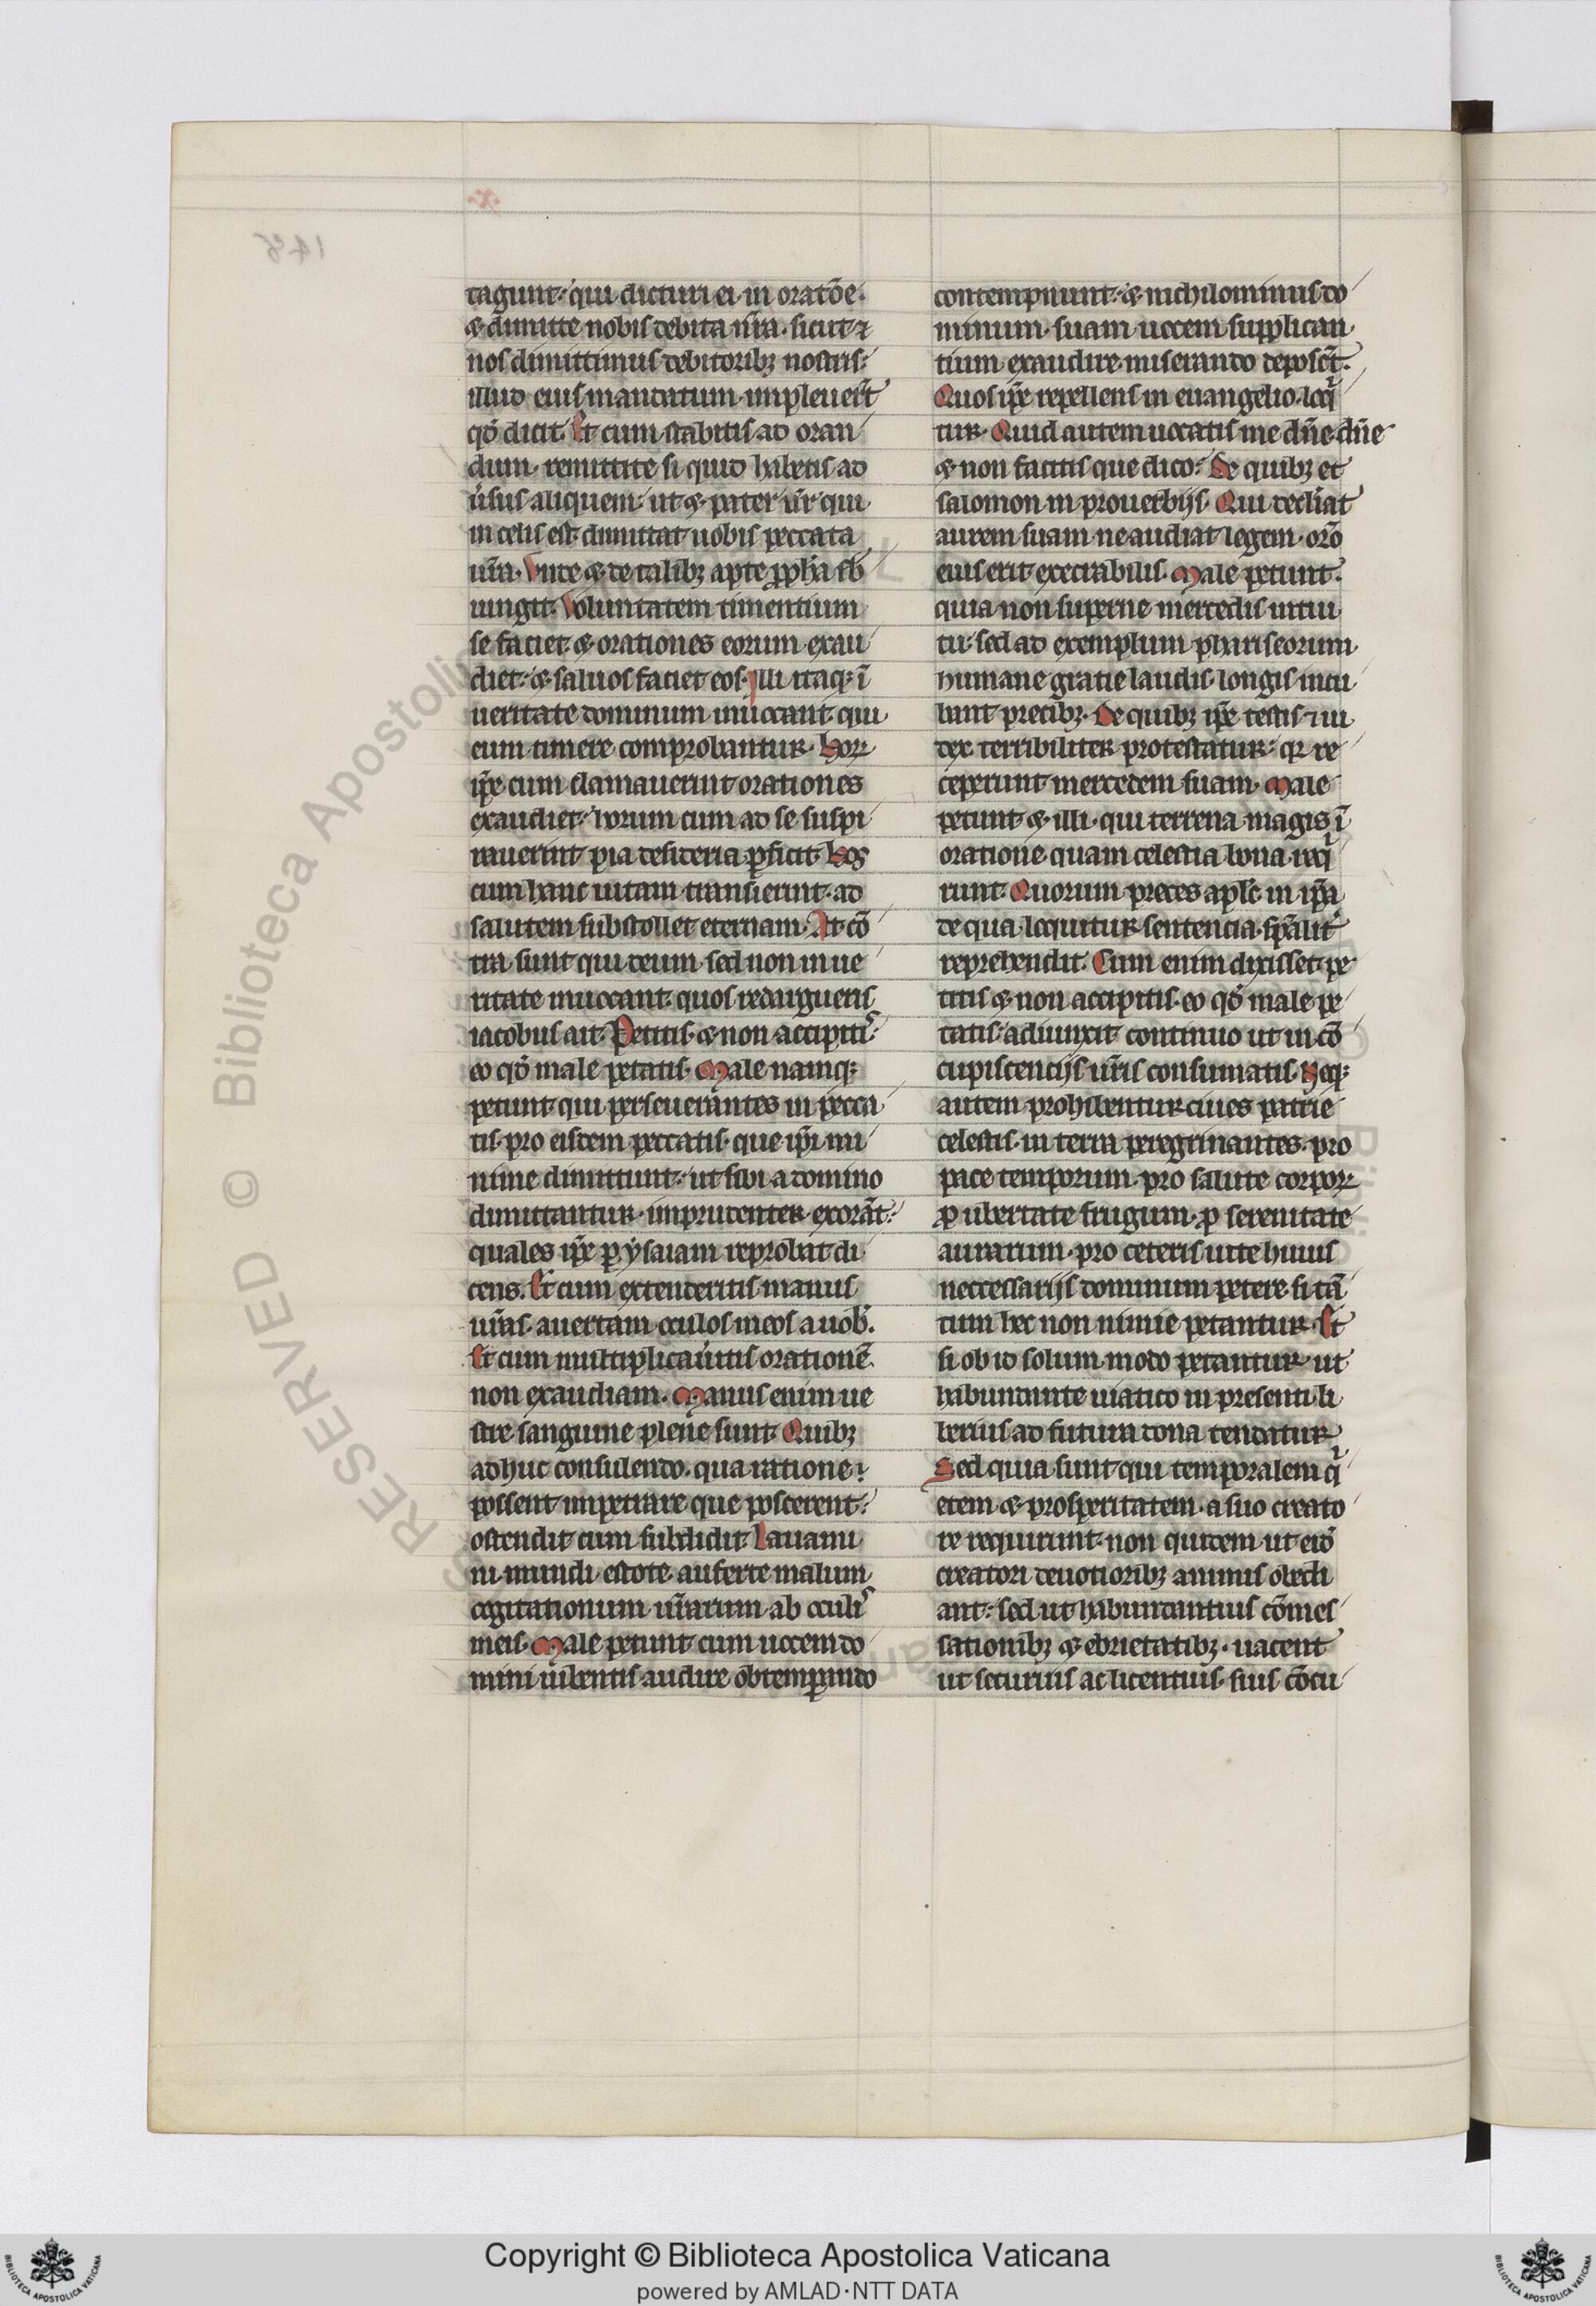 tagunt. qui dicturi ei in oratōe.
⁊ dimitte nobis debita nr̄a. sicut ⁊
nos dimittimus debitoribꝫ nostris.
illud eius mandatum impleuert̄
qd̓ dicit. Et cum stabitis ad oran
dum remittite si quid habetis ad
ủsus aliquem. ut ⁊ pater ur̄ qui
in celis est dimittat uobis peccata
ur̄a. Vnde ⁊ de talibꝫ apte ꝓph̄a sb̓
iungit. Voluntatem timentium
se faciet. ⁊ orationes eorum exau
diet. ⁊ saluos faciet eos. Illi itaqꝫ ī
ueritate dominum inuocant qui
eum timere comprobantur. Hoꝝ
ip̄e cum clamauerint orationes
exaudiet. horum cum ad se suspi
rauerint pia desideria ꝑficit. Hos
cum hanc uitam transierint. ad
salutem substollet eternam. At cō
tra sunt qui deum sed non in ue
ritate inuocant. quos redarguens
iacobus ait. Petitis ⁊ non accipitis.
eo qd̓ male petatis. Male namqꝫ
petunt qui perseuerantes in pecca
tis. pro eisdem peccatis. que ip̄i mi
nime dimittunt. ut sibi a domino
dimittantur. imprudenter exorāt.
quales ip̄e ꝑ ysaiam reprobat di
cens. Et cum extenderitis manus
ur̄as. auertam oculos meos a uob̓.
Et cum multiplicaủitis orationē
non exaudiam. Manus enim ue
stre sanguine plene sunt. Quibꝫ
adhuc consulendo. qua ratione
possent impetrare que poscerent.
ostendit cum subdidit. Lauami
ni mundi estote. auferte malum
cogitationum ur̄arum ab oculis
meis. Male petunt cum uocem do
mini iubentis audire obtemꝑando
contempnunt. ⁊ nichilominus do
minum suam uocem supplican
tium exaudire miserando deposct̄.
Quos ip̄e repellens in euangelio loq̄
tur. Quid autem uocatis me dn̄e dn̄e
⁊ non facitis que dico. De quibꝫ et
salomon in prouerbijs. Qui decliat
aurem suam ne audiat legem. orō
eius erit execrabilis. Male petunt
quia non superne mercedis intui
tu. sed ad exemplum phariseorum
humane gratie laudis longis incu
bunt precibꝫ. De quibꝫ ip̄e testis ⁊ iu
dex terribiliter protestatur. qr re
ceperunt mercedem suam. Male
petunt ⁊ illi. qui terrena magis ī
oratione quam celestia bona req̄
runt. Quorum preces apl̄c in ip̄a
de qua loquitur sentencia. sp̄alit̓
reprehendit. Cum enim dixisset. pe
titis ⁊ non accipitis. eo qd̓ male pe
tatis. adiunxit continuo ut in cō
cupiscencijs ur̄is consumatis. Neqꝫ
autem prohibentur ciues patrie
celestis. in terra peregrinantes. pro
pace temporum. pro salute corpoꝝ
ꝓ ubertate frugum. ꝓ serenitate
aurarum. pro ceteris uite huius
neccessarijs dominum petere. si tā
tum hec non nimie petantur. Et
si ob id solum modo petantur. ut
habundante uiatico in presenti. li
berius ad futura dona tendatur.
Sed quia sunt qui temporalem q̄
etem ⁊ prosperitatem. a suo creato
re requirunt. non quidem ut eid̓
creatori deuotioribꝫ animis obedi
ant. sed ut habundantius cōmes
sationibꝫ ⁊ ebrietatibꝫ. uacent
ut securius ac licentius. suis cōcu
Copyright © Biblioteca Apostolica Vaticana
powered by AMLAD·NTT DATA